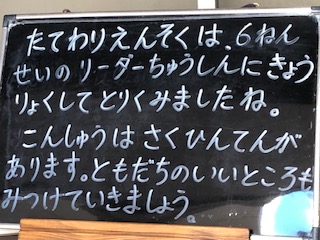 たてわりえんそくは、6ねん
せいのリーダーちゅうしんにきょう
りょくしてとりくみましたね。
こんしゅうはさくひんてんが
あります。ともだちのいいところも
みつけていきましょう。